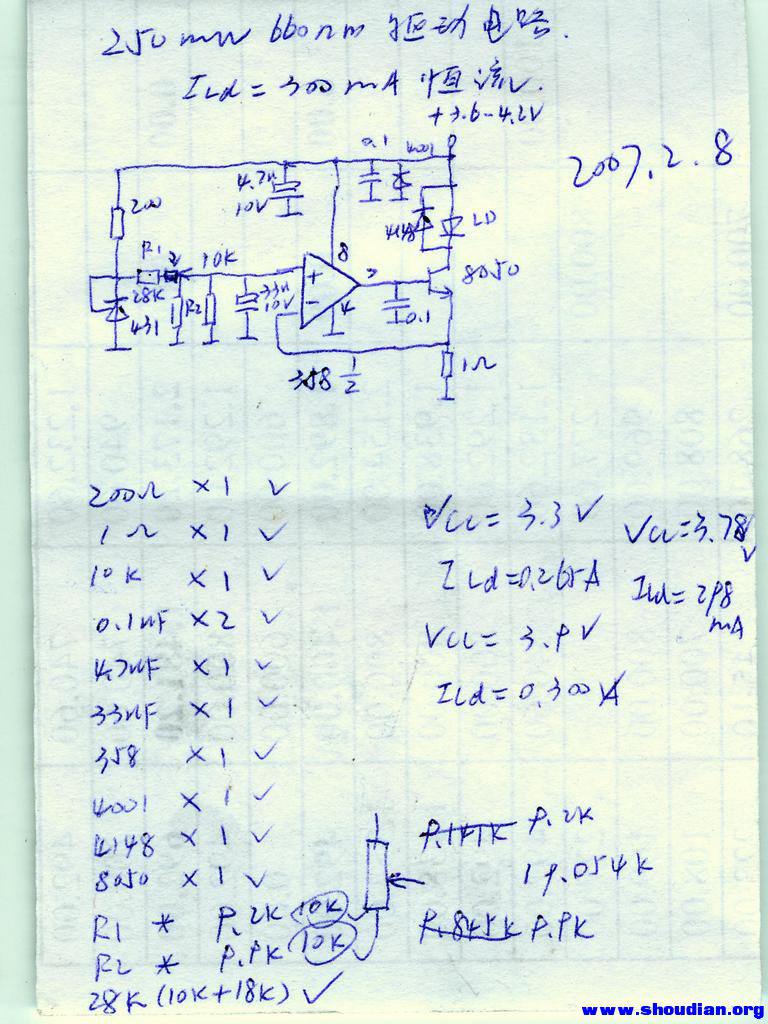 250mw 660nm 驱动电路.
ILd = 300mA 恒流.
+3.6-4.2V
2007.2.8
0.1
4001
4.7u
10V
200
R1
10K
28K
431
R2
33u
10V
+
-
8
4
4148
LD
8050
0.1
1Ω
358 1/2
200Ω × 1 ✓
1Ω × 1 ✓
10K × 1 ✓
0.1uF × 2 ✓
4.7uF × 1 ✓
33uF × 1 ✓
358 × 1 ✓
4001 × 1 ✓
4148 × 1 ✓
8050 × 1 ✓
R1 * 9.2K (10K)
R2 * 9.9K (10K)
28K (10K+18K) ✓
Vcc = 3.3V
ILd = 0.265A
Vcc = 3.9V
ILd = 0.300A
Vcc = 3.78V
ILd = 298mA
9.141K 9.2K
19.054K
9.9K
www.shoudian.org